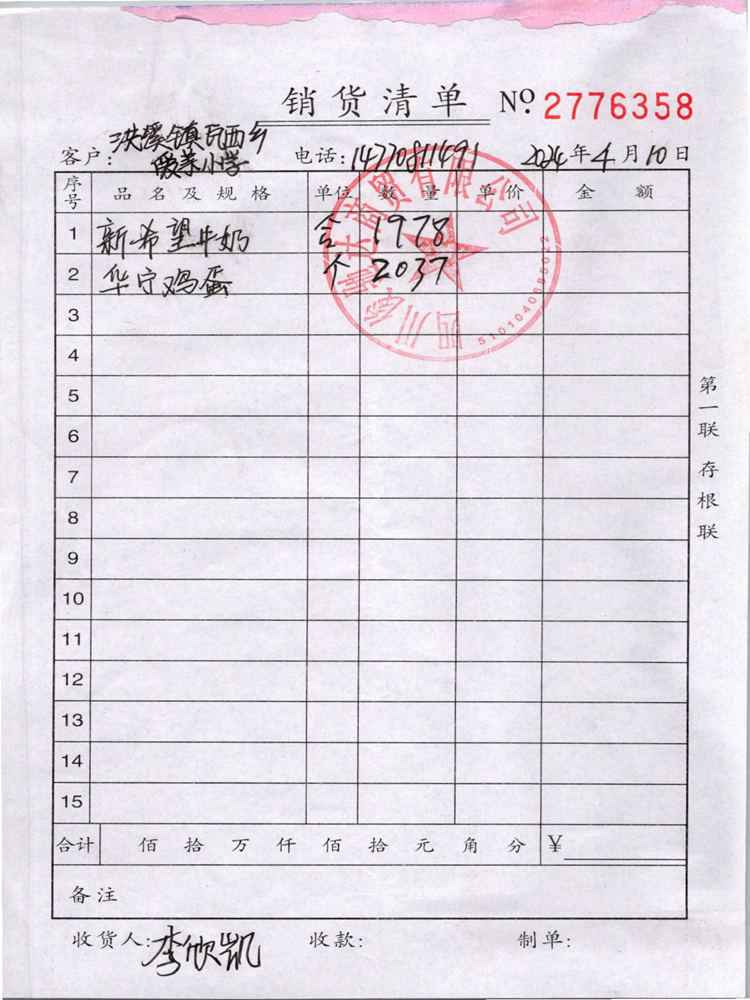 销货清单 № 2776358
客户: 洪溪镇瓦西乡
小学
电话: 14770811491 2024年4月10日
序号 品名及规格 单位 数量 单价 金额
1 新希望牛奶 合 1978
2 华宁鸡蛋 个 2037
3
4
5
6
7
8
9
10
11
12
13
14
15
合计 佰 拾 万 仟 佰 拾 元 角 分 ¥
备注
收货人: 李欣凯 收款: 制单:
第一联 存根联
四川 达商贸有限公司